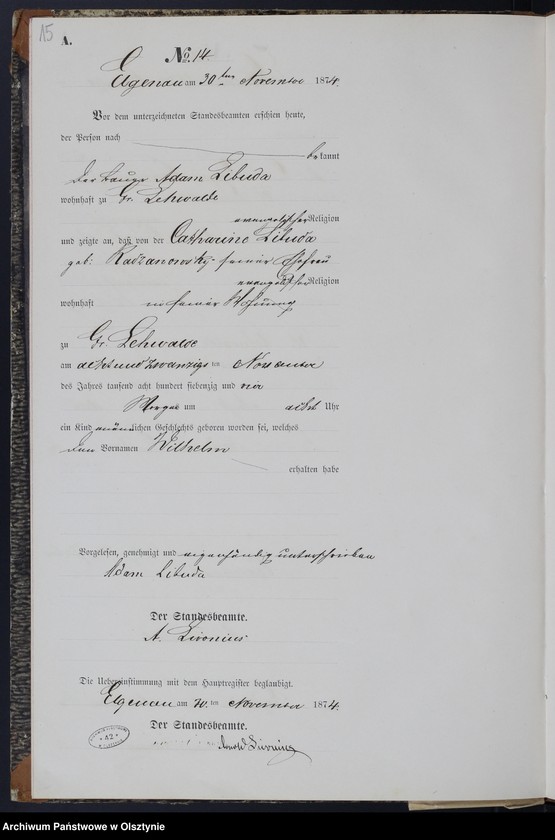 15
A.
No. 14
Elgenau am 30ten November 1874.
Vor dem unterzeichneten Standesbeamten erschien heute,
der Person nach
bekannt
der Bauer Adam Libuda
wohnhaft zu Gr. Lehwalde
evangelischer Religion
und zeigte an, daß von der Catharine Libuda
geb: seiner Ehefrau
evangelischer Religion
wohnhaft in seiner Wohnung
zu Gr. Lehwalde
am acht und zwanzigsten November
des Jahres tausend acht hundert siebenzig und vier
Morgens um acht Uhr
ein Kind männlichen Geschlechts geboren worden sei, welches
den Vornamen Wilhelm
erhalten habe
Vorgelesen, genehmigt und eigenhändig unterschrieben
Adam Libuda
Der Standesbeamte.
A. Livonius
Die Uebereinstimmung mit dem Hauptregister beglaubigt.
Elgenau am 30. ten November 1874.
Der Standesbeamte.
A2
Arnold Livonius
Archiwum Państwowe w Olsztynie